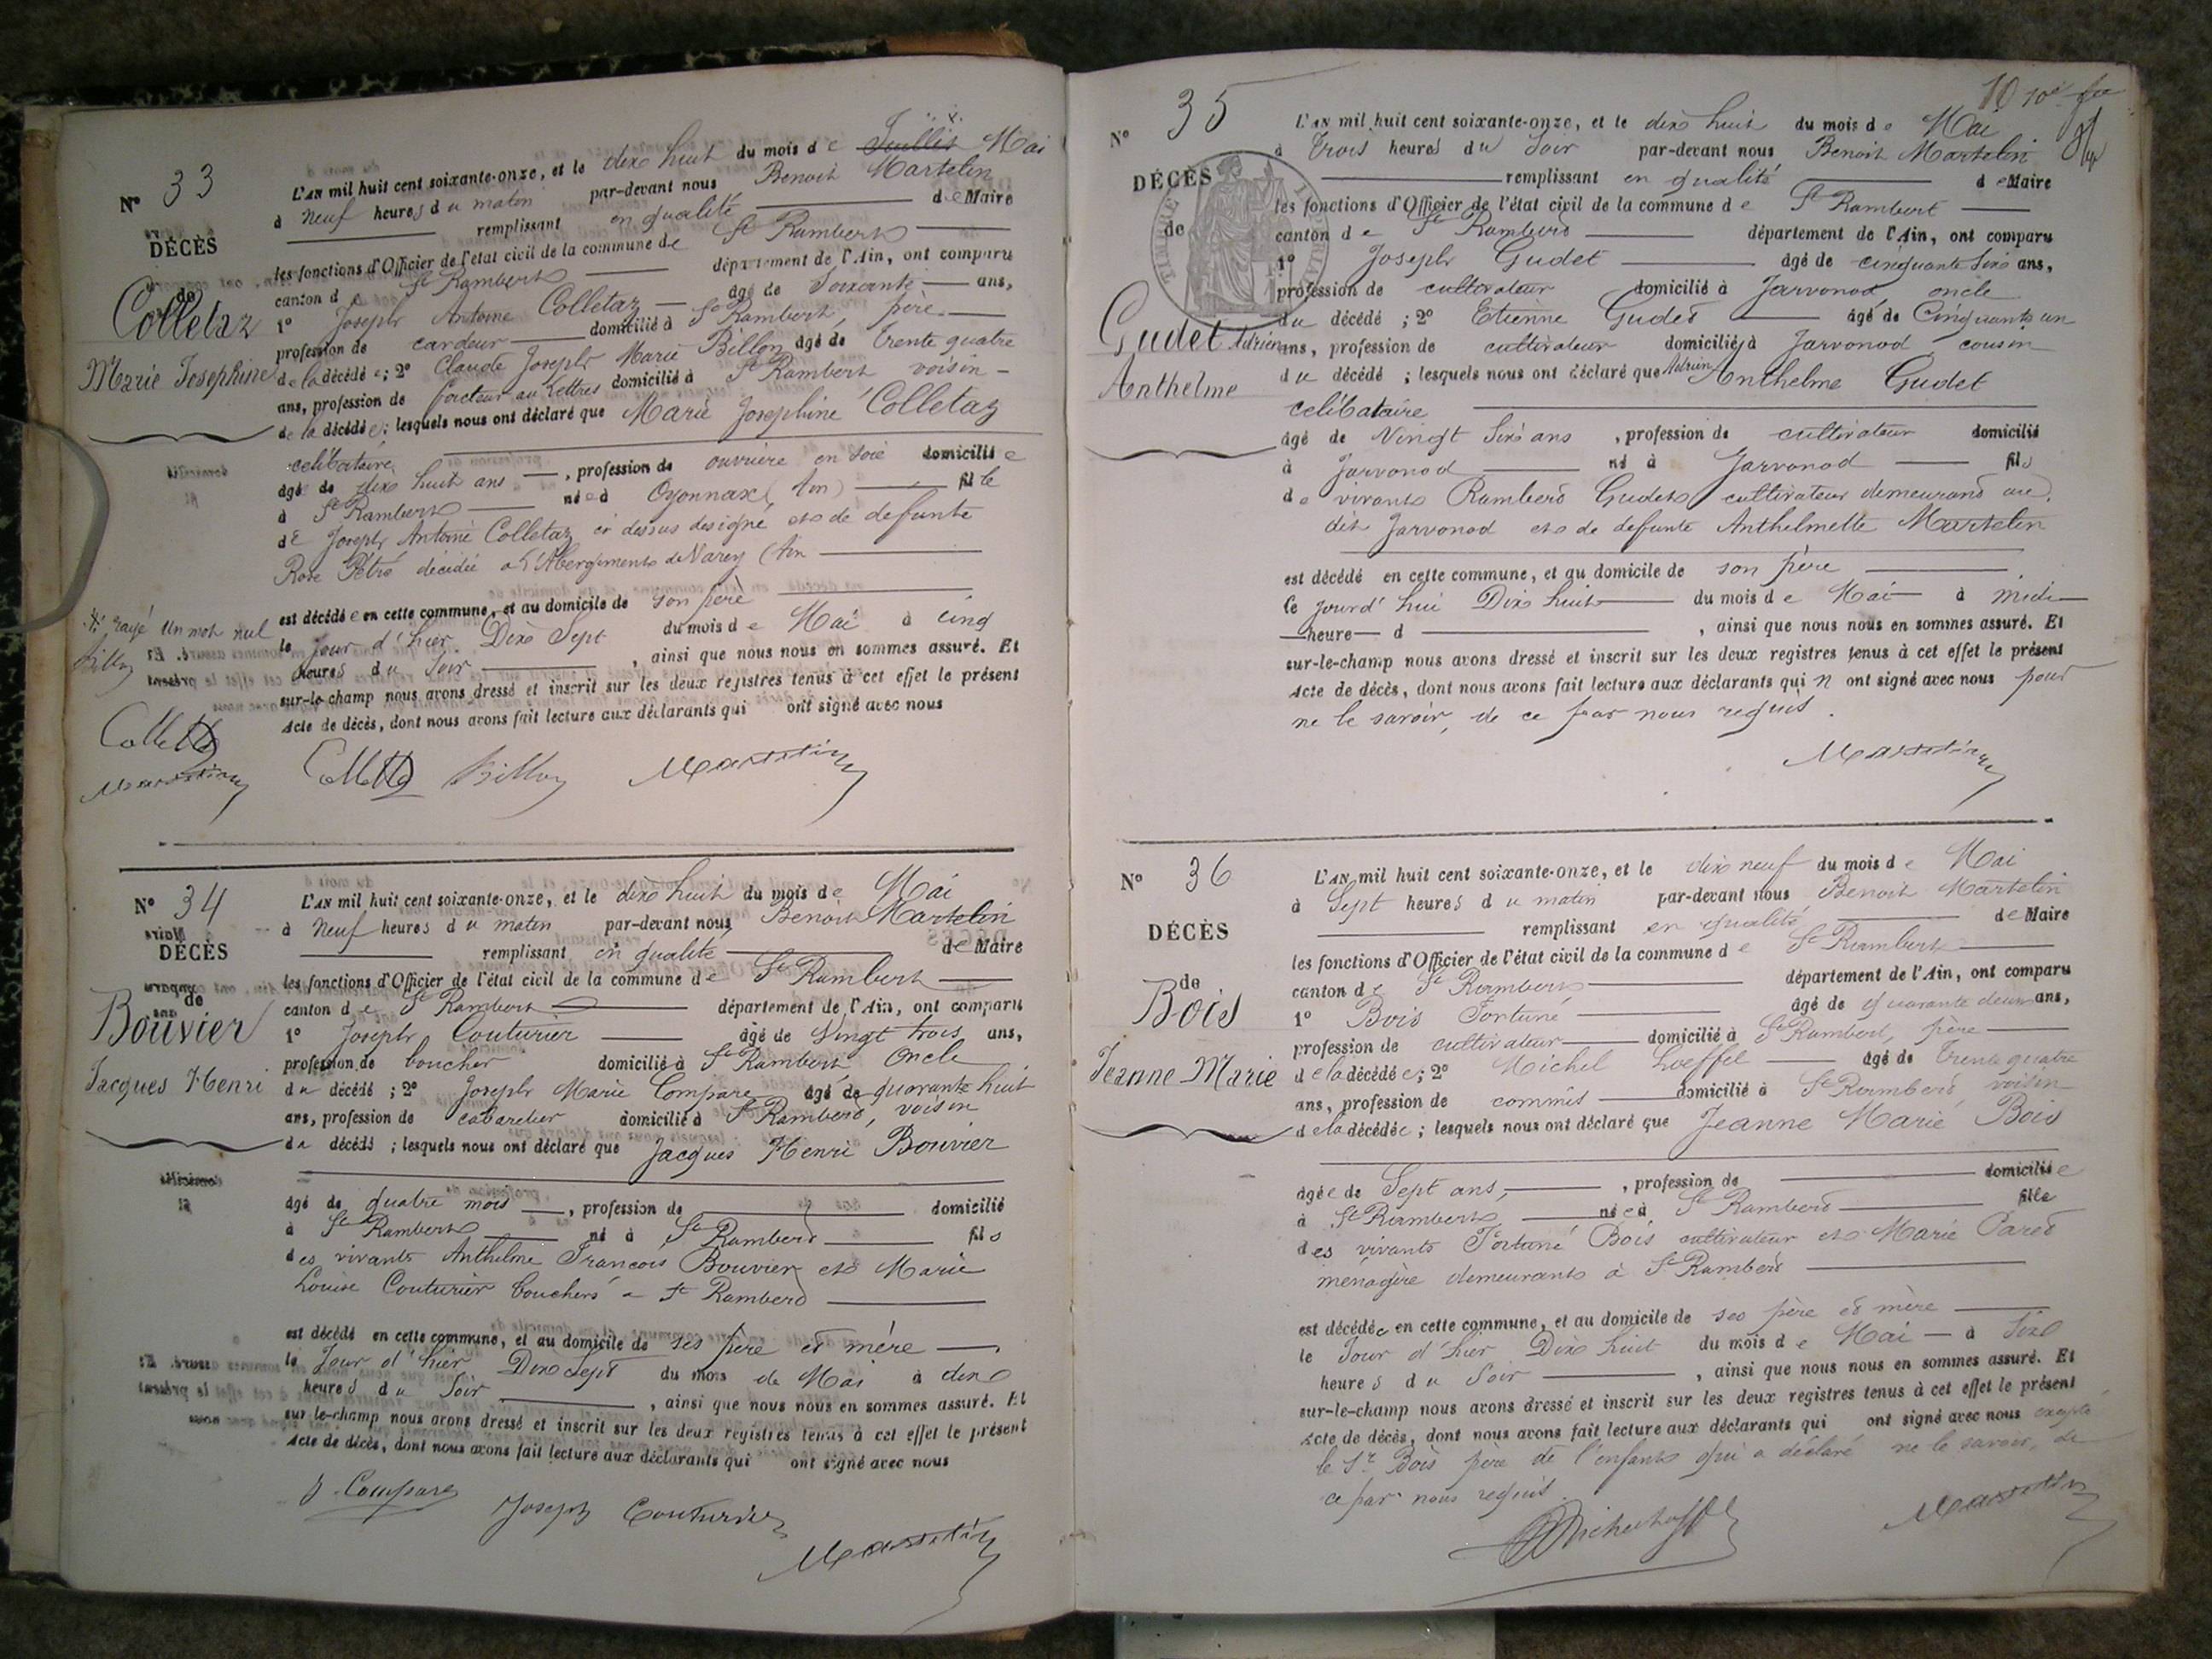 N° 33
DÉCÈS
de
Colletaz
Marie Josephine
L'AN mil huit cent soixante-onze, et le dix huit du mois de Juillet Mai
à Neuf heures du matin par-devant nous Benoit Martelin
remplissant en qualité de Maire
les fonctions d'Officier de l'état civil de la commune de St Rambert
canton d St Rambert département de l'Ain, ont comparu
1° Joseph Antoine Colletaz âgé de Soixante ans,
profession de cardeur domicilié à St Rambert, père
de la décédée; 2° Claude Joseph Marie Billon âgé de trente quatre
ans, profession de facteur au lettres domicilié à St Rambert voisin
de la décédée; lesquels nous ont déclaré que Marie Josephine Colletaz
celibataire
âgé de dix huit ans, profession de ouvriere en soie domiciliée
à St Rambert née à Oyonnax (Ain) fille
de Joseph Antoine Colletaz ci dessus designé et de defunte
Rose Pétré décédée à l'Abergement de Varey (Ain
est décédée en cette commune, et au domicile de son père
le jour d'hier Dix Sept du mois de Mai à cinq
heures du Soir, ainsi que nous nous en sommes assuré. Et
sur-le-champ nous avons dressé et inscrit sur les deux registres tenus à cet effet le présent
acte de décès, dont nous avons fait lecture aux déclarants qui ont signé avec nous
rayé Un mot nul
Billon
Martelin
Billon Martelin
N° 34
DÉCÈS
de
Bouvier
Jacques Henri
L'AN mil huit cent soixante-onze, et le dix huit du mois de Mai
à Neuf heures du matin par-devant nous Benoit Martelin
remplissant en qualité de Maire
les fonctions d'Officier de l'état civil de la commune de St Rambert
canton de St Rambert département de l'Ain, ont comparu
1° Joseph Couturier âgé de Vingt trois ans,
profession de boucher domicilié à St Rambert Oncle
du décédé; 2° Joseph Marie Compare âgé de quarante huit
ans, profession de cabaretier domicilié à St Rambert, voisin
du décédé; lesquels nous ont déclaré que Jacques Henri Bouvier
âgé de quatre mois, profession de domicilié
à St Rambert né à St Rambert fils
des vivants Anthelme Francois Bouvier et Marie
Louise Couturier bouchers à St Rambert
est décédé en cette commune, et au domicile de ses père et mère
le Jour d'hier Dix Sept du mois de Mai à dix
heures du Soir, ainsi que nous nous en sommes assuré. Et
sur-le-champ nous avons dressé et inscrit sur les deux registres tenus à cet effet le présent
acte de décès, dont nous avons fait lecture aux déclarants qui ont signé avec nous
J. Compare Joseph Couturier
Martelin
10
N° 35
DÉCÈS
de
Gudet Adrien
Anthelme
L'AN mil huit cent soixante-onze, et le dix huit du mois de Mai
à trois heures du Soir par-devant nous Benoit Martelin
remplissant en qualité de Maire
les fonctions d'Officier de l'état civil de la commune de St Rambert
canton de St Rambert département de l'Ain, ont comparu
1° Joseph Gudet âgé de cinquante six ans,
profession de cultivateur domicilié à Javornod oncle
du décédé; 2° Etienne Gudet âgé de Cinquante un
ans, profession de cultivateur domicilié à Jarvonod cousin
du décédé; lesquels nous ont déclaré que Adrien Anthelme Gudet
celibataire
âgé de Vingt Six ans, profession de cultivateur domicilié
à Jarvonod né à Jarvonod fils
de vivant Rambert Gudet cultivateur demeurant au
dit Jarvonod et de defunte Anthelmette Martelin
est décédé en cette commune, et au domicile de son père
le jourd'hui Dix huit du mois de Mai à midi
heure d, ainsi que nous nous en sommes assuré. Et
sur-le-champ nous avons dressé et inscrit sur les deux registres tenus à cet effet le présent
acte de décès, dont nous avons fait lecture aux déclarants qui n ont signé avec nous pour
ne le savoir, de ce par nous requis.
Martelin
N° 36
DÉCÈS
de
Bois
Jeanne Marie
L'AN mil huit cent soixante-onze, et le dix neuf du mois de Mai
à Sept heures du matin par-devant nous Benoit Martelin
remplissant en qualité de Maire
les fonctions d'Officier de l'état civil de la commune de St Rambert
canton de St Rambert département de l'Ain, ont comparu
1° Bois Fortuné âgé de quarante deux ans,
profession de cultivateur domicilié à St Rambert, père
de la décédée; 2° Michel Loeffel âgé de trente quatre
ans, profession de commis domicilié à St Rambert, voisin
de la décédée; lesquels nous ont déclaré que Jeanne Marie Bois
âgée de Sept ans, profession de domiciliée
à St Rambert née à St Rambert fille
des vivants Fortuné Bois cultivateur et Marie Paret
ménagère demeurants à St Rambert
est décédée en cette commune, et au domicile de ses père et mère
le Jour d'hier Dix huit du mois de Mai à Six
heures du Soir, ainsi que nous nous en sommes assuré. Et
sur-le-champ nous avons dressé et inscrit sur les deux registres tenus à cet effet le présent
acte de décès, dont nous avons fait lecture aux déclarants qui ont signé avec nous excepté
le Sr Bois père de l'enfant qui a déclaré ne le savoir, de
ce par nous requis.
Martelin